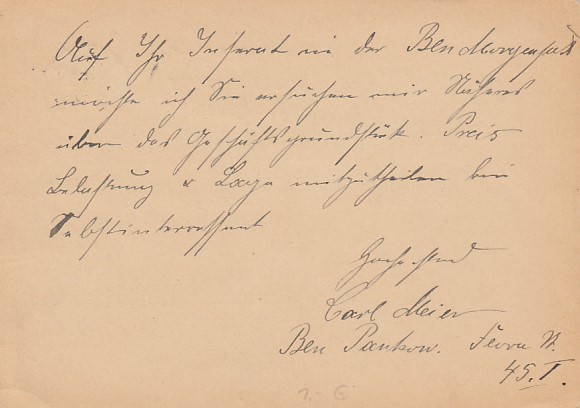 Auf Ihr Inserat in der Bln Morgenpost
möchte ich Sie ersuchen mir Näheres
über das Geschäftsgrundstük. Preis
Belastung & Lage mitzutheilen bin
Selbstinteressent
Hochachtend
Carl Meier
Bln Pankow. Flora St.
45. I.
1,- €